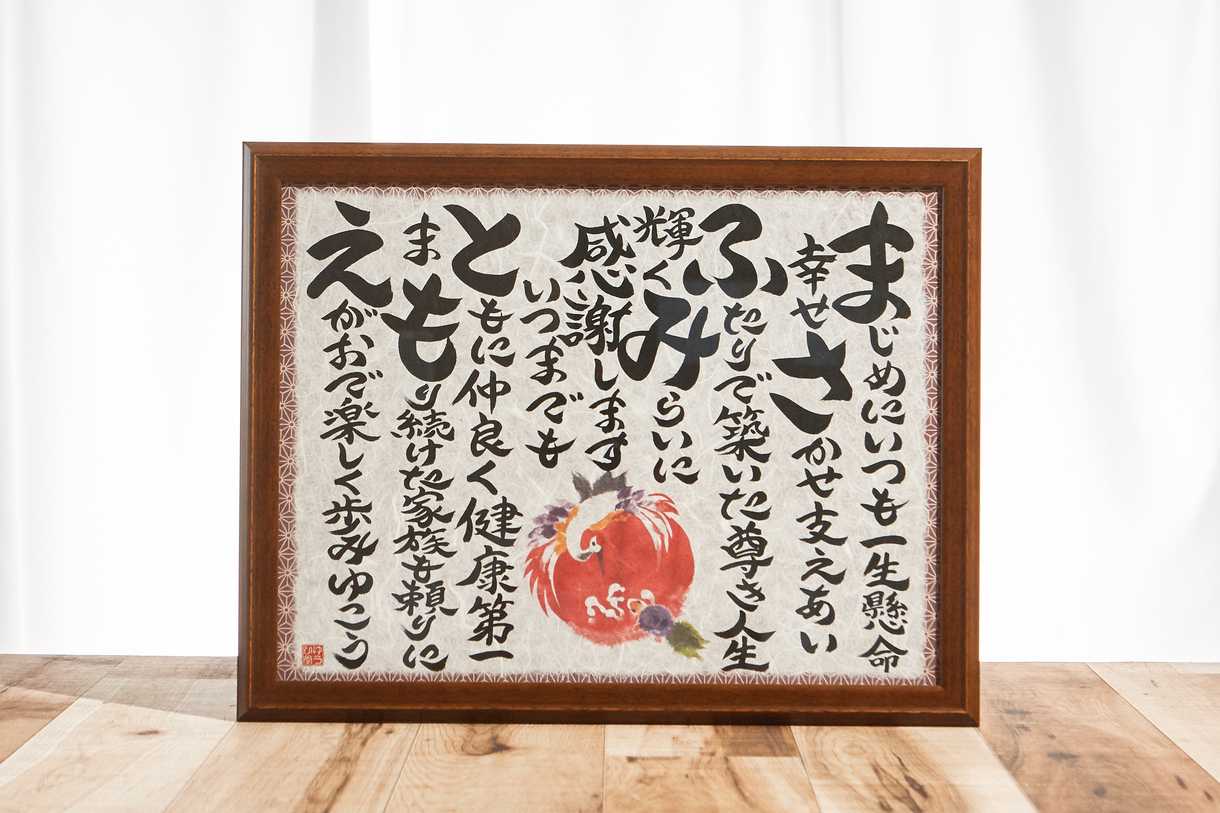 まじめにいつも一生懸命
幸せさかせ支えあい
ふたりで築いた尊き人生
輝くみらいに
感謝します
いつまでも
ともに仲良く健康第一
まもり続けた家族も頼りに
えがおで楽しく歩みゆこう